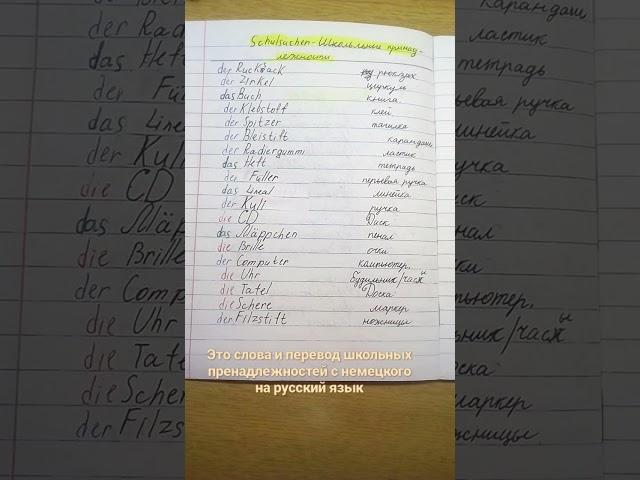 Schulsachen-Школьные принад-
лежности.
der Rucksack рюкзак
der Zirkel циркуль
das Buch книга.
der Klebstoff клей
der Spitzer тачилка
der Bleistift карандаш
der Radiergummi ластик
das Heft тетрадь
der Füller перьевая ручка
das Lineal линейка
der Kuli ручка
die CD Диск
das Mäppchen пенал
die Brille очки
der Computer кампьютер.
die Uhr будильник/часы
die Tafel Доска
die Schere маркер
der Filzstift ножницы
Это слова и перевод школьных
пренадлежностей с немецкого
на русский язык